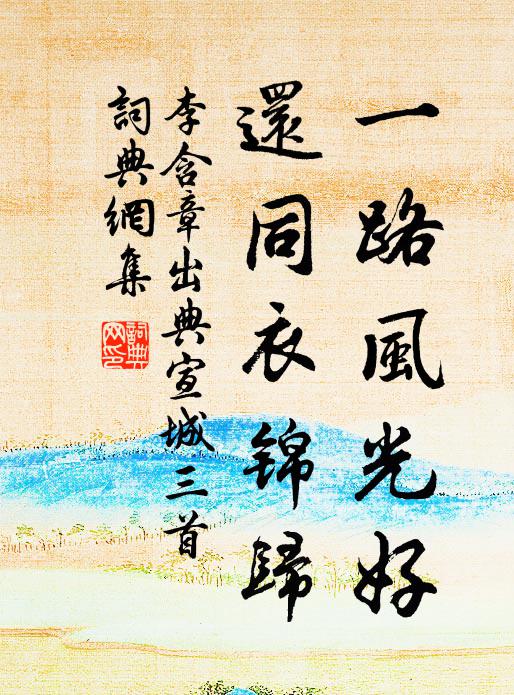 一路風光好
還同衣錦歸
李含章出典宣城三首
詞典網集
詞典网印